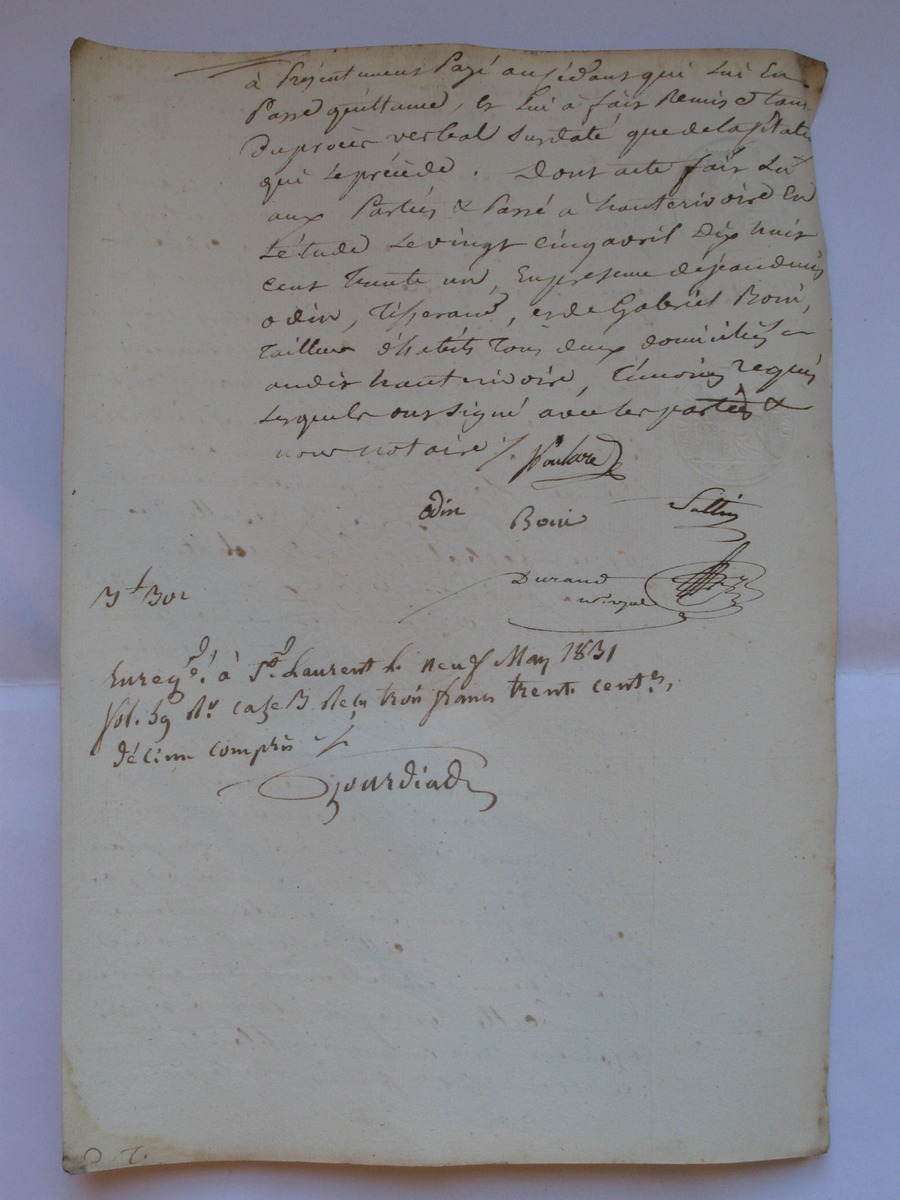 à Présent ment Payé au sédant qui Lui En
Passe quittance, et Lui à fait Remise tant
Du procès verbal Susdaté, que de la
qui Le précède. Dont acte fait Lu
aux Parties & Passé à hauterivoire En
L'étude Le vingt cinq avril Dix huit
cent Trente un, En présence de jean denis
odin, Tisserand, et de Gabriel Boiri,
Tailleur d'habits Tous deux domiciliés
audit hauterivoire, Témoins requis
Lesquels ont Signé avec les parties &
nous notaire ./.
odin Boiri
Durand
3f 30c
Enregé. à St. Laurent le neuf May 1831
fol. 59 Ro. case 3 Reçu trois francs trente centes,
décime compris ./.
Jourdiad